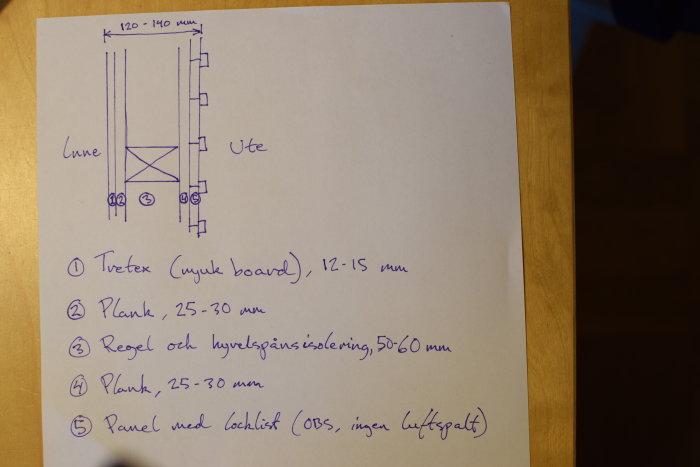 120-140 mm
Inne
Ute
① ② ③ ④ ⑤
① Tretex (mjuk board), 12-15 mm
② Plank, 25-30 mm
③ Regel och hyvelspånsisolering, 50-60 mm
④ Plank, 25-30 mm
⑤ Panel med locklist (OBS, ingen luftspalt)